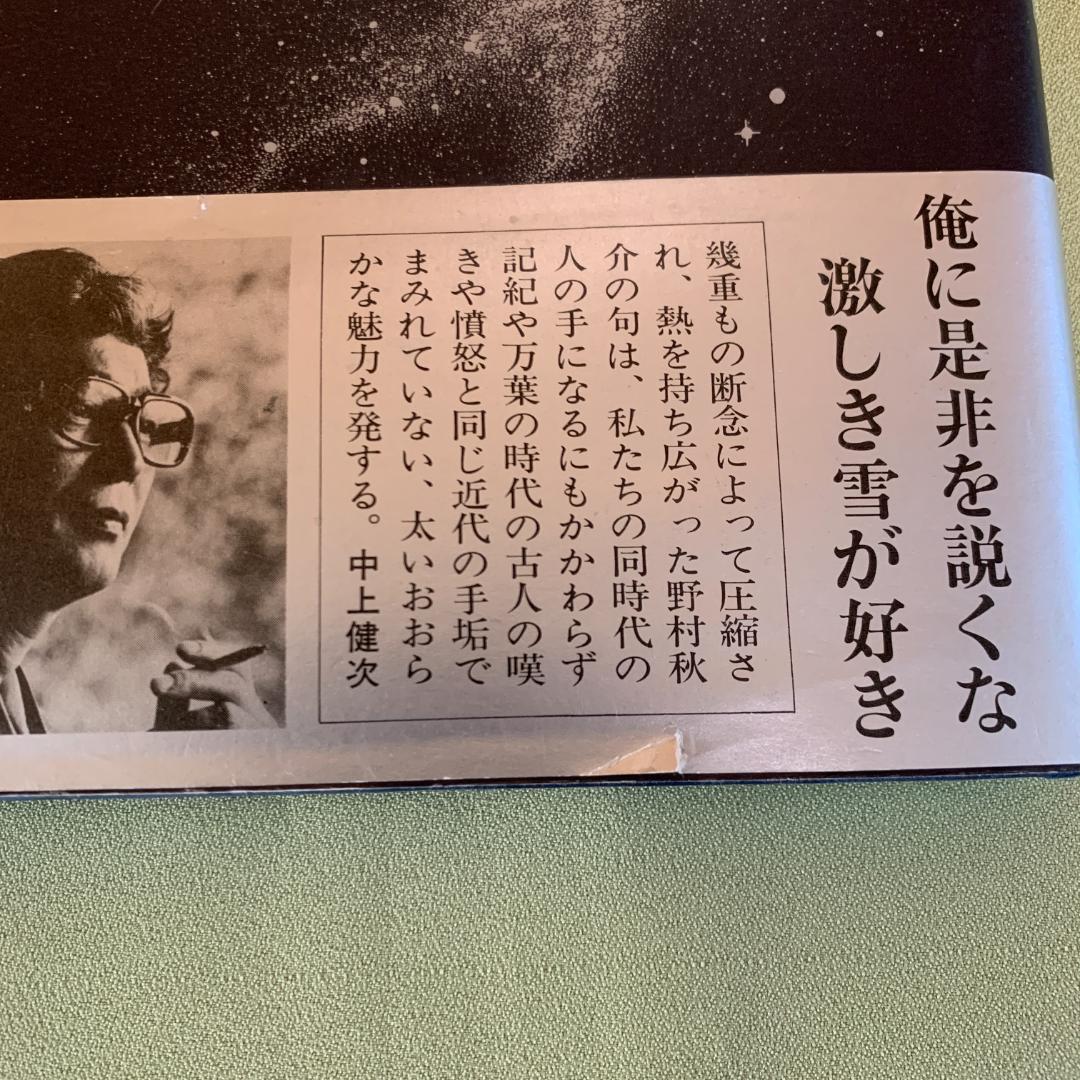 俺に是非を説くな
激しき雪が好き
幾重もの断念によって圧縮さ
れ、熱を持ち広がった野村秋
介の句は、私たちの同時代の
人の手になるにもかかわらず
記紀や万葉の時代の古人の嘆
きや憤怒と同じ近代の手垢で
まみれていない、太いおおら
かな魅力を発する。中上健次